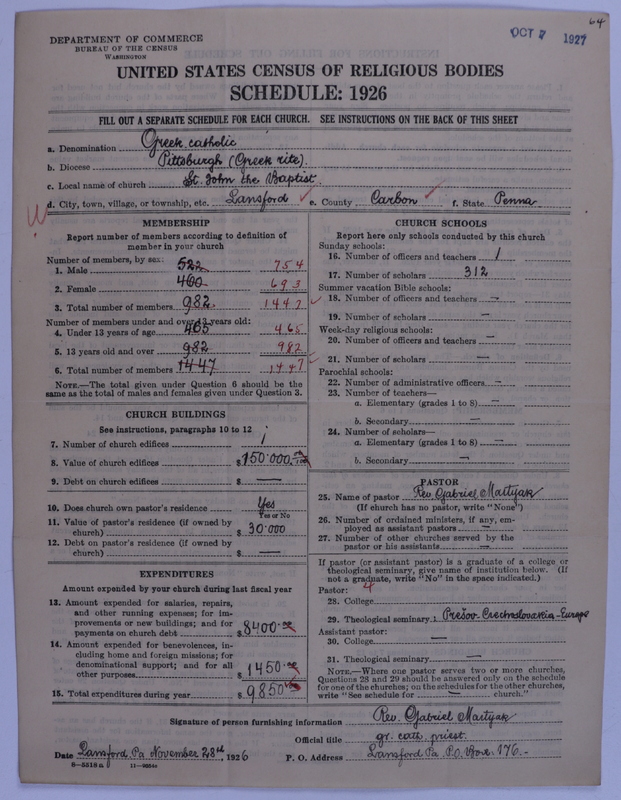 64
OCT 7 1927
DEPARTMENT OF COMMERCE
BUREAU OF THE CENSUS
WASHINGTON
UNITED STATES CENSUS OF RELIGIOUS BODIES
SCHEDULE: 1926
FILL OUT A SEPARATE SCHEDULE FOR EACH CHURCH. SEE INSTRUCTIONS ON THE BACK OF THIS SHEET
a. Denomination Greek catholic
b. Diocese Pittsburgh (Greek rite)
c. Local name of church St. John the Baptist
d. City, town, village, or township, etc. Lansford e. County Carbon f. State Penna
MEMBERSHIP
Report number of members according to definition of
member in your church
Number of members, by sex:
1. Male 522 754
2. Female 460 693
3. Total number of members 982 1447
Number of members under and over 13 years old:
4. Under 13 years of age 465 465
5. 13 years old and over 982 982
6. Total number of members 1447 1447
NOTE.—The total given under Question 6 should be the
same as the total of males and females given under Question 3.
CHURCH BUILDINGS
See instructions, paragraphs 10 to 12
7. Number of church edifices 1
8. Value of church edifices $150.000
9. Debt on church edifices $ —
10. Does church own pastor's residence Yes
Yes or No
11. Value of pastor's residence (if owned by
church) $ 30.000
12. Debt on pastor's residence (if owned by
church) $ —
EXPENDITURES
Amount expended by your church during last fiscal year
13. Amount expended for salaries, repairs,
and other running expenses; for im-
provements or new buildings; and for
payments on church debt $8400.
14. Amount expended for benevolences, in-
cluding home and foreign missions; for
denominational support; and for all
other purposes $1450.
15. Total expenditures during year $9850
CHURCH SCHOOLS
Report here only schools conducted by this church
Sunday schools:
16. Number of officers and teachers 1
17. Number of scholars 312
Summer vacation Bible schools:
18. Number of officers and teachers —
19. Number of scholars —
Week-day religious schools:
20. Number of officers and teachers —
21. Number of scholars —
Parochial schools:
22. Number of administrative officers —
23. Number of teachers—
a. Elementary (grades 1 to 8) —
b. Secondary —
24. Number of scholars—
a. Elementary (grades 1 to 8) —
b. Secondary —
PASTOR
25. Name of pastor Rev. Gabriel Martyak
(If church has no pastor, write "None")
26. Number of ordained ministers, if any, em-
ployed as assistant pastors —
27. Number of other churches served by the
pastor or his assistants —
If pastor (or assistant pastor) is a graduate of a college or
theological seminary, give name of institution below. (If
not a graduate, write "No" in the space indicated.)
Pastor: 4
28. College
29. Theological seminary Prešov-Czechoslovakia-Europe
Assistant pastor:
30. College —
31. Theological seminary —
NOTE.—Where one pastor serves two or more churches,
Questions 28 and 29 should be answered only on the schedule
for one of the churches; on the schedules for the other churches,
write "See schedule for — church."
Signature of person furnishing information Rev. Gabriel Martyak
Official title gr. cath. priest.
Date Lansford, Pa November 28th, 1926 P. O. Address Lansford Pa. P.O. Box. 176.-
8—5518a